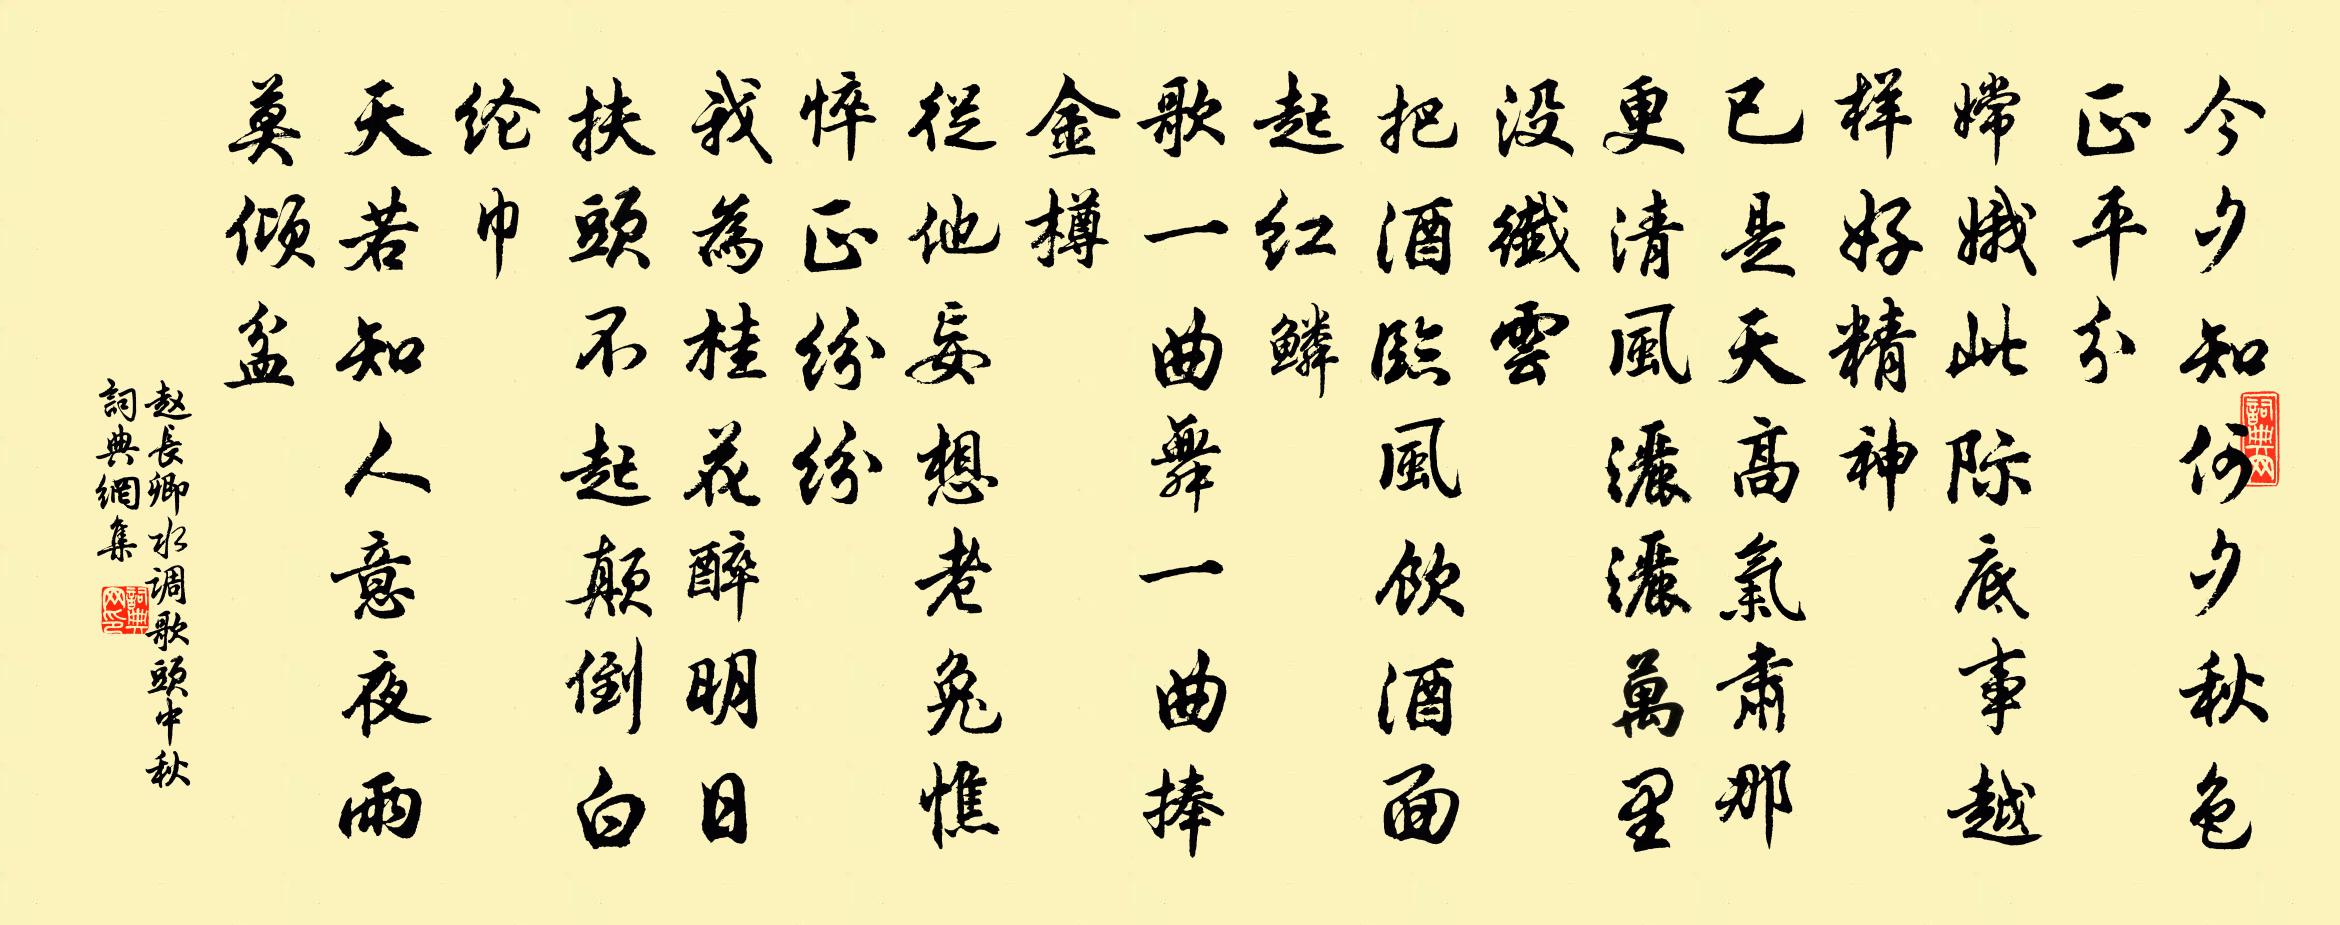 今夕知何夕秋色
正平分
嫦娥此际底事越
样好精神
已是天高氣肃那
更清風灑灑萬里
没纖雲
把酒臨風飲酒面
起红鳞
歌一曲舞一曲捧
金樽
從他妄想老兔憔
悴正纷纷
我為桂花醉明日
扶頭不起颠倒白
纶巾
天若知人意夜雨
莫倾盆
赵長卿水调歌頭中秋
詞典網集
詞典网
詞典网印